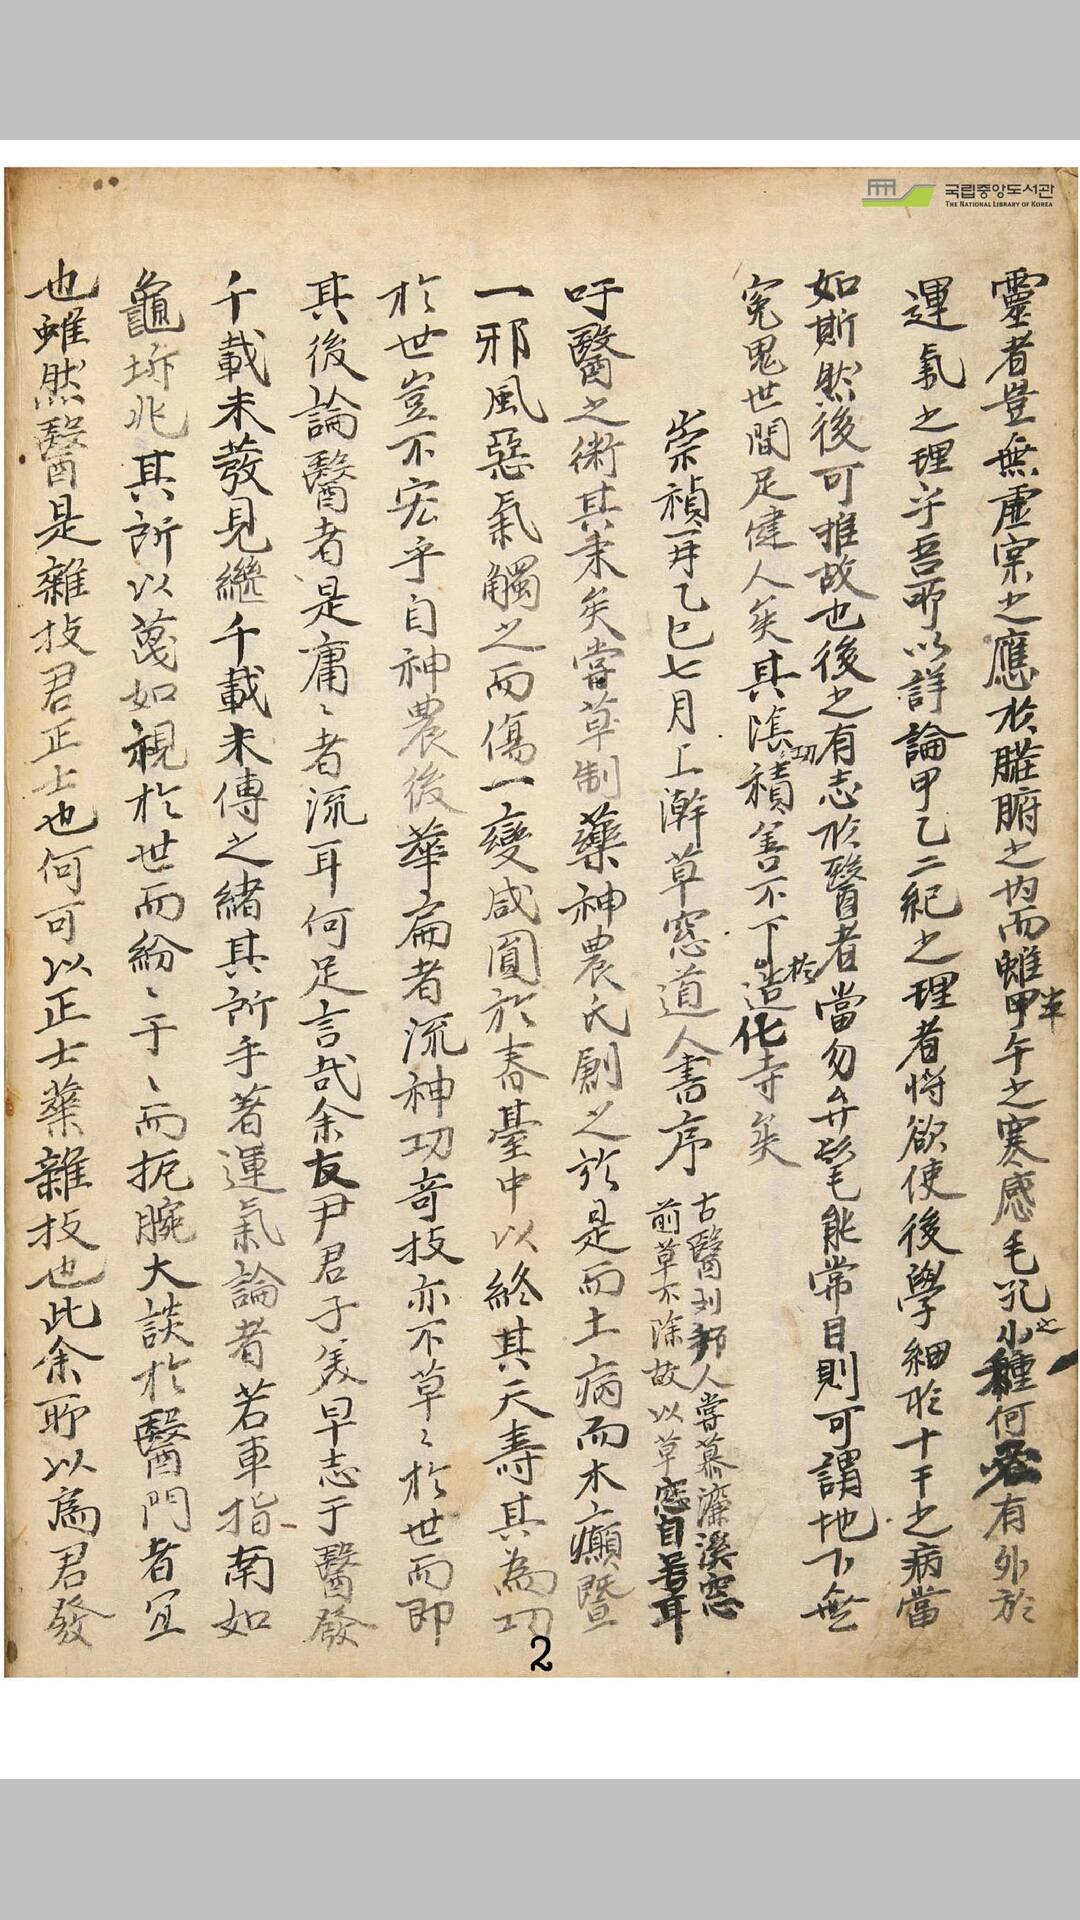 국립중앙도서관
THE NATIONAL LIBRARY OF KOREA
靈者豈無虛宗之應於臟腑之內而雖甲午之寒感毛孔小種何有外於
半
之
運氣之理乎吾所以詳論甲乙二紀之理者將欲使後學細聆十干之病當
如斯然後可推故也後之有志於醫者當勿弁髦能常目則可謂地下無
冤鬼世間足健人矣其陰積善不下造化寺矣
功
於
崇禎再乙巳七月上澣草窓道人書序
古醫刘邦人嘗慕濂溪窓
前草不除故以草窓自耳
吁醫之術其來矣嘗草制藥神農氏創之於是而土病而木癲曁
一邪風惡氣觸之而傷一變咸圓於春臺中以終其天壽其為功
於世豈不宏乎自神農後華扁者流神功奇技亦不草〻於世而即
其後論醫者是庸〻者流耳何足言哉余友尹君子美早志于醫發
千載未發見繼千載未傳之緒其所手著運氣論者若車指南如
龜坼兆其所以蔑如視於世而紛〻于〻而扼腕大談於醫門者宜
也雖然醫是雜技君正士也何可以正士業雜技也此余所以爲君發
2